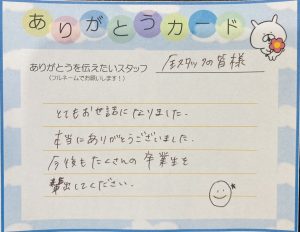 ありがとうカード
ありがとうを伝えたいスタッフ
(フルネームでお願いします！)
全スタッフの皆様
とてもお世話になりました。
本当にありがとうございました。
今後もたくさんの卒業生を
輩出してください。